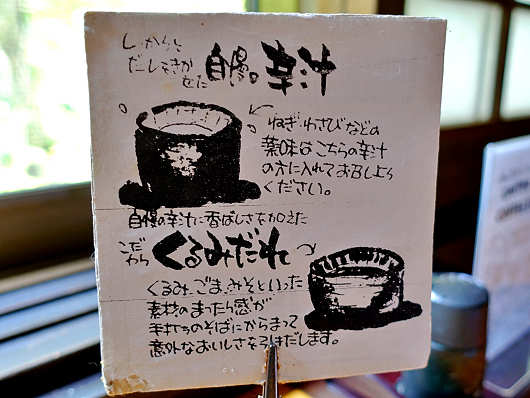 しっかりと
だしをきか
せた
自慢の辛汁
ねぎ・わさびなどの
薬味はこちらの辛汁
の方に入れてお召し上り
ください。
自慢の辛汁に香ばしさを加えた
こだわり
くるみだれ
くるみ、ごま、みそといった
素材のまったり感が
手打ちのそばにからまって
意外なおいしさをひきだします。